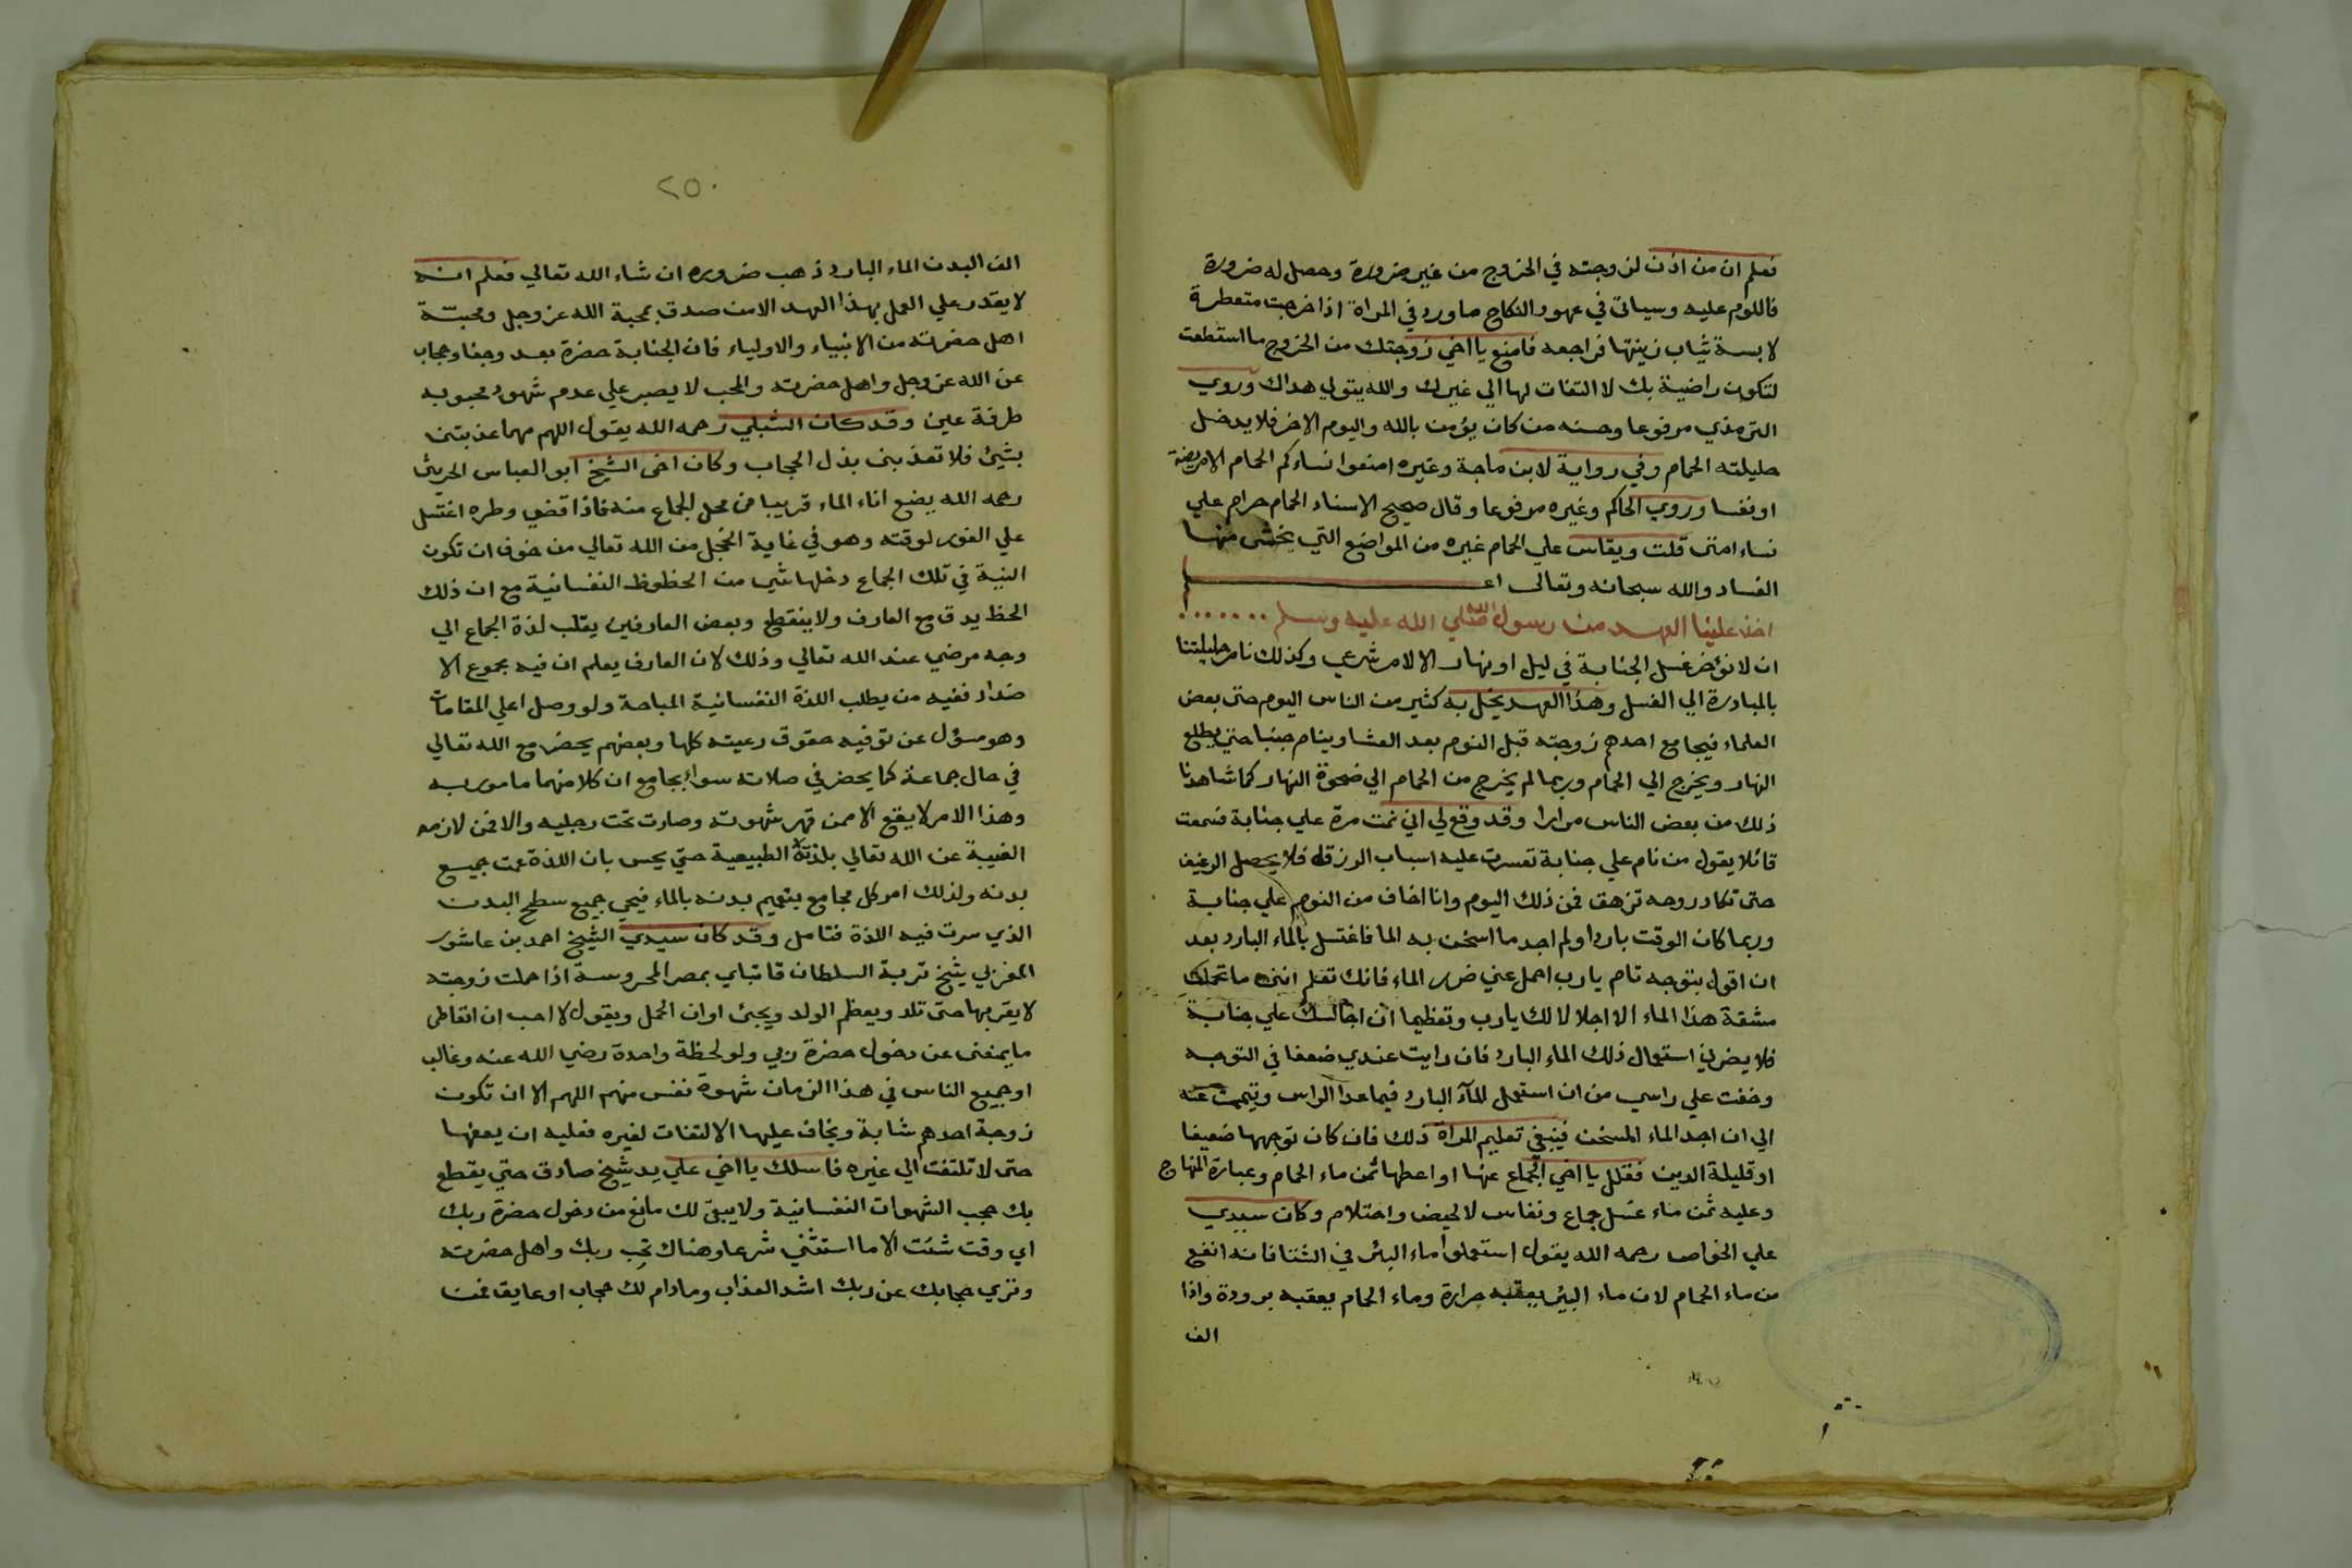 فعلم ان من اذن لزوجته في الخروج من غير ضرورة وحصل له ضرورة
فاللوم عليه وسياتي في عهود النكاح ما ورد في المراة اذا خرجت متعطرة
لابسة ثياب زينتها فراجعه فامنع يا اخي زوجتك من الخروج ما استطعت
لتكون راضية بك لا التفات لها الي غيرك والله يتولي هداك وروي
الترمذي مرفوعا وحسنه من كان يؤمن بالله واليوم الاخر فلا يدخل
حليلته الحمام وفي رواية لابن ماجة وغيره امنعوا نساءكم الحمام الا مريضة
او نفسا وروي الحاكم وغيره مرفوعا وقال صحيح الاسناد الحمام حرام علي
نساء امتي قلت ويقاس علي الحمام غيره من المواضع التي يخشى منها
الفساد والله سبحانه وتعالى اعلم
اخذ علينا العهد من رسول الله صلي الله عليه وسلم
ان لا نؤخر غسل الجنابة في ليل او نهار الا لامر شرعي وكذلك نامر حليلتنا
بالمبادرة الي الغسل وهذا العهد يخل به كثير من الناس اليوم حتى بعض
العلماء فيجامع احدهم زوجته قبل النوم بعد العشا وينام جنبا حتي يطلع
النهار ويخرج الي الحمام وربما لم يخرج من الحمام الي ضحوة النهار كما شاهدنا
ذلك من بعض الناس مرارا وقد وقع لي اني نمت مرة علي جنابة فسمعت
قائلا يقول من نام علي جنابة تعسرت عليه اسباب الرزق فلا يحصل الرغيف
حتى تكاد روحه تزهق فمن ذلك اليوم وانا اخاف من النوم علي جنابة
وربما كان الوقت باردا ولم اجد ما اسخن به الما فاغتسل بالماء البارد بعد
ان اقول بتوجه تام يا رب احمل عني ضرر الماء فانك تعلم انني ما تحملت
مشقة هذا الماء الا اجلالا لك يا رب وتعظيما ان اجالسك علي جنابة
فلا يضرني استعمال ذلك الماء البارد فان رايت عندي ضعفا في التوجه
وخفت علي راسي من ان استعمل المآء البارد فيما عدا الراس وتيممت عنه
الي ان اجد الماء المسخن فينبغي تعليم المراة ذلك فان كان توجهها ضعيفا
او قليلة الدين فقلل يا اخي الجماع عنها او اعطها ثمن ماء الحمام وعبارة المنهاج
وعليه ثمن ماء غسل جماع ونفاس لا لحيض واحتلام وكان سيدي
علي الخواص رحمه الله يقول استعملوا ماء البئر في الشتا فانه انفع
من ماء الحمام لان ماء البئر يعقبه حرارة وماء الحمام يعقبه برودة واذا
الف
٢٥٠
الف البدن الماء البارد ذهب ضرورہ ان شاء الله تعالي فعلم انه
لا يقدر علي العمل بهذا العهد الا من صدق بمحبة الله عز وجل ومحبتة
اهل حضرته من الانبياء والاولياء فان الجنابة حضرة بعد وجفا وحجاب
عن الله عز وجل واهل حضرته والمحب لا يصبر علي عدم شهود محبوبه
طرفة عين وقد كان الشبلي رحمه الله يقول اللهم مهما عذبتني
بشيئ فلا تعذبني بذل الحجاب وكان اخي الشيخ ابو العباس الحريثي
رحمه الله يضع اناء الماء قريبا من محل الجماع منه فاذا قضي وطره اغتسل
علي الفور لوقته وهو في غاية الخجل من الله تعالي من خوف ان تكون
النية في تلك الجماع دخلها شي من الحظوظ النفسانية مع ان ذلك
الحظ يدق مع العارف ولا ينقطع وبعض العارفين يقلب لذة الجماع الي
وجه مرضي عند الله تعالي وذلك لان العارف يعلم ان فيه مجموع الا
ضداد ففيه من يطلب اللذة النفسانية المباحة ولو وصل اعلي المقامات
وهو مسؤل عن توفيه حقوق رعيته كلها وبعضهم يحضر مع الله تعالي
في حال جماعه كما يحضر في صلاته سواء بجامع ان كلا منهما مامور به
وهذا الامر لا يقع الا ممن قهر شهوته وصارت تحت رجليه والا فمن لازمه
الغيبة عن الله تعالي بلذته الطبيعية حتي يحس بان اللذة عمت جميع
بدنه ولذلك امر كل مجامع بتعميم بدنه بالماء فيحي جميع سطح البدن
الذي سرت فيه اللذة فتامل وقد كان سيدي الشيخ احمد بن عاشور
المغربي شيخ تربة السلطان قايتباي بمصر المحروسة اذا حملت زوجته
لا يقربها حتى تلد ويعظم الولد ويجئ اوان الحمل ويقول لا احب ان اتعاطى
ما يمنعني عن دخول حضرة ربي ولو لحظة واحدة رضي الله عنه وغالب
او جميع الناس في هذا الزمان شهوة نفس منهم اللهم الا ان تكون
زوجة احدهم شابة ويخاف عليها الالتفات لغيره فعليه ان يعفها
حتى لا تلتفت الي غيره فاسلك يا اخي علي يد شيخ صادق حتي يقطع
بك حجب الشهوات النفسانية ولا يبقى لك مانع من دخول حضرة ربك
اي وقت شئت الا ما استثني شرعا وهناك تحب ربك واهل حضرته
وتري حجابك عن ربك اشد العذاب وما دام لك حجاب او عايق فمن